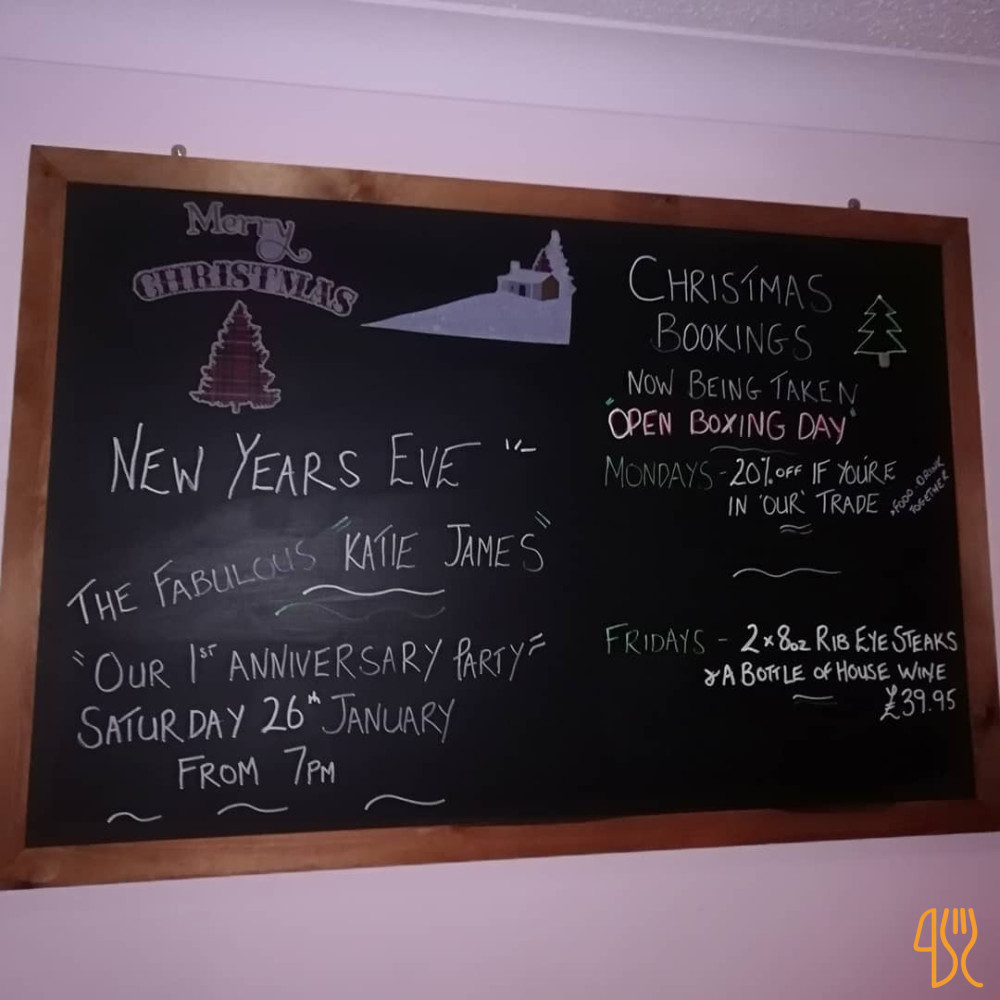 Merry
CHRISTMAS
NEW YEARS EVE
THE FABULOUS "KATIE JAMES"
"OUR 1ST ANNIVERSARY PARTY"
SATURDAY 26th JANUARY
FROM 7PM
CHRISTMAS
BOOKINGS
NOW BEING TAKEN
"OPEN BOXING DAY"
MONDAYS - 20% OFF IF YOU'RE
IN 'OUR' TRADE
FOOD + DRINK
TOGETHER
FRIDAYS - 2 x 8oz RIB EYE STEAKS
& A BOTTLE of HOUSE WINE
£39.95